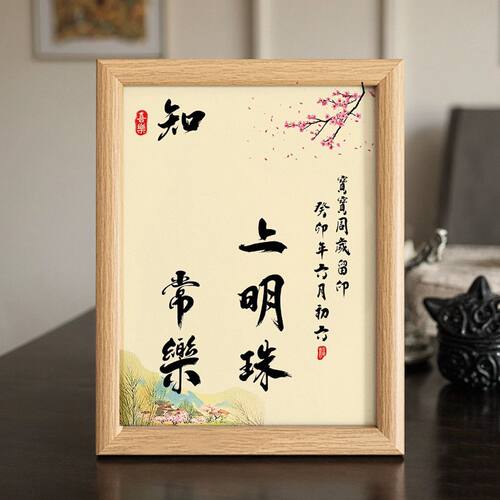 寶寶周歲留印
癸卯年六月初六
上明珠
知 常樂
喜樂